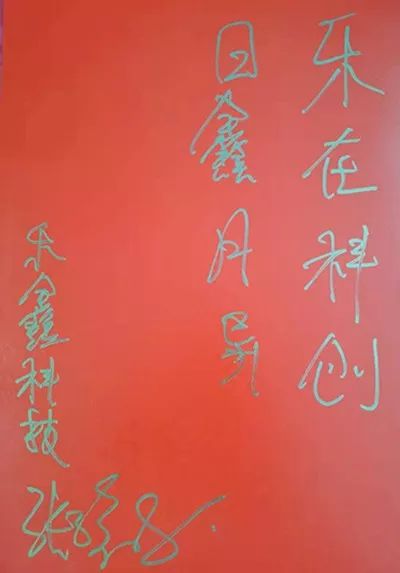 乐在科创
日鑫月异
乐鑫科技
张